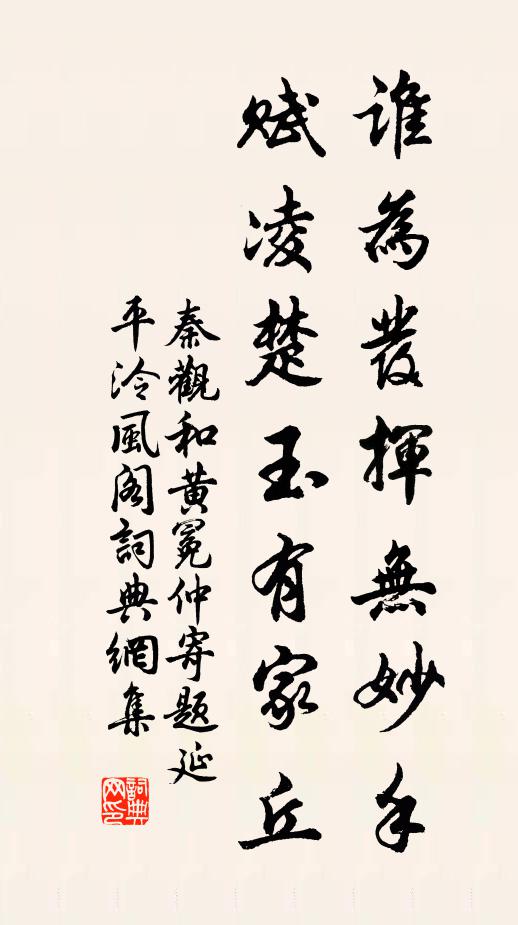 誰為發揮無妙手
賦凌楚玉有家丘
秦觀和黃冕仲寄題延
平泠風阁詞典網集
詞典
网印